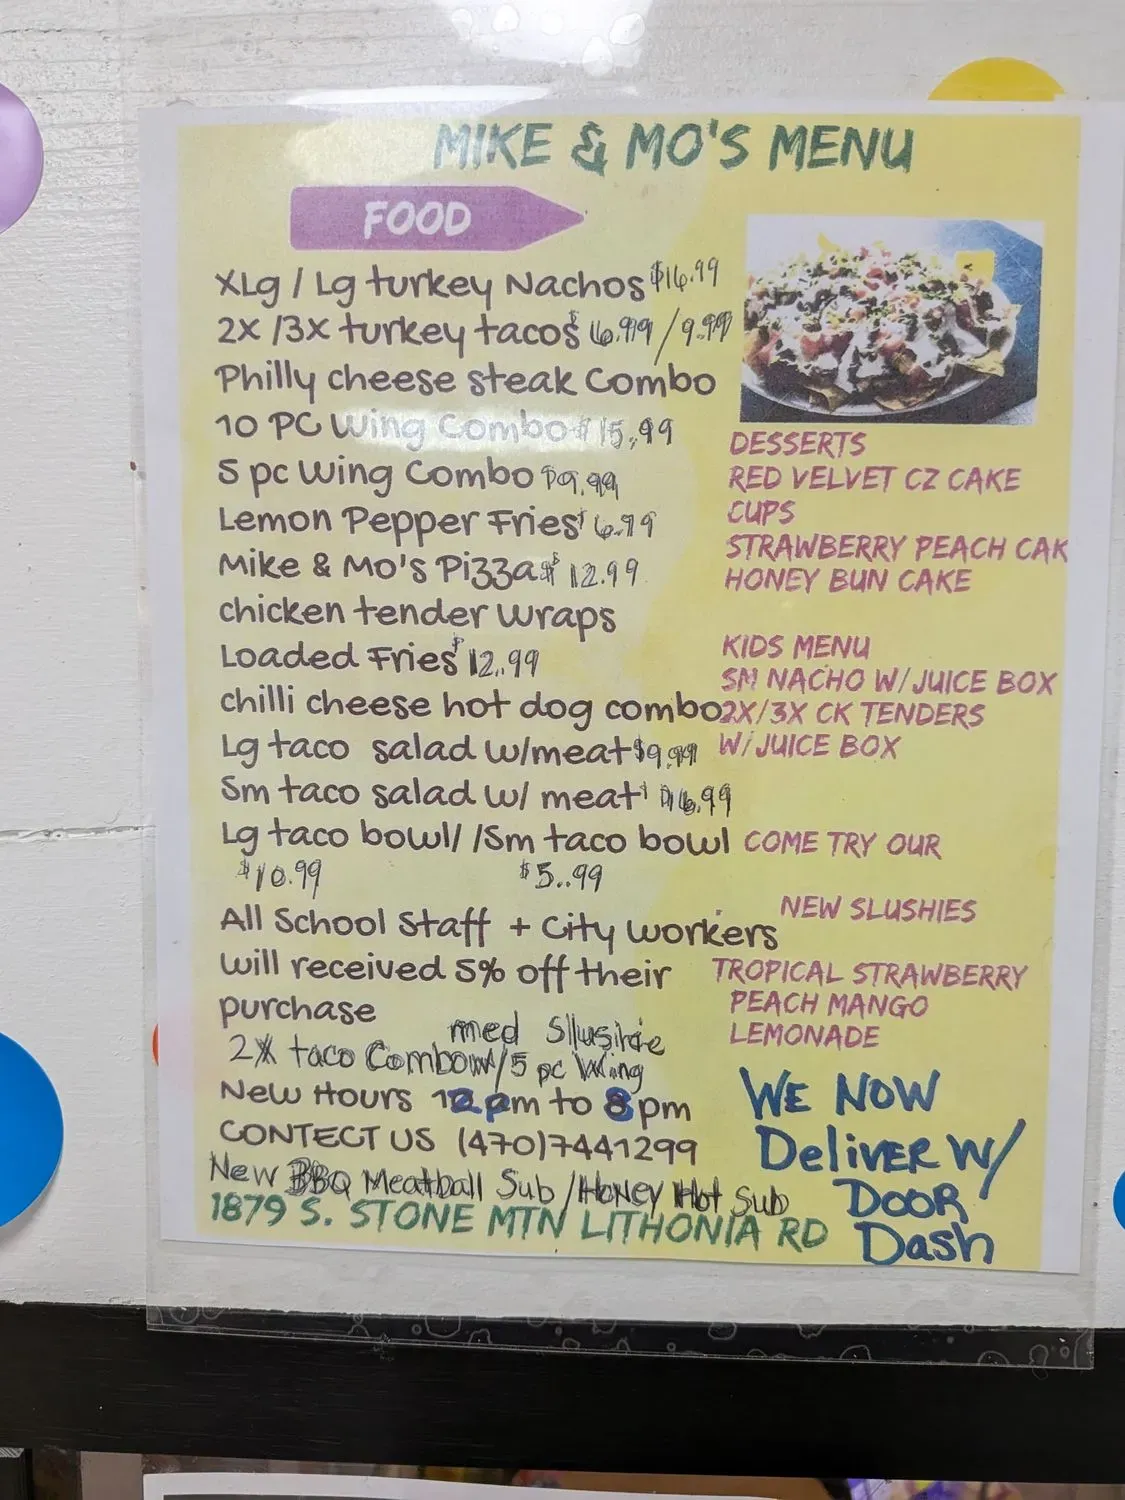 MIKE & MO'S MENU
FOOD
XLg / Lg turkey Nachos $16.99
2X /3X turkey tacos $6.99 / 9.99
Philly cheese steak Combo
10 PC Wing Combo $15.99
5 pc Wing Combo $9.99
Lemon Pepper Fries $6.99
Mike & Mo's Pizza $12.99
chicken tender wraps
Loaded Fries $12.99
chilli cheese hot dog combo
Lg taco salad w/meat $9.99
Sm taco salad w/ meat $6.99
Lg taco bowl/ /Sm taco bowl
$10.99 $5.99
All School Staff + City workers
will received 5% off their
purchase
med Sllushie
2X taco Combo w/5 pc Wing
New Hours 12pm to 8pm
CONTECT US (470)7441299
New BBQ Meatball Sub / Honey Hot Sub
1879 S. STONE MTN LITHONIA RD
DESSERTS
RED VELVET CZ CAKE
CUPS
STRAWBERRY PEACH CAK
HONEY BUN CAKE
KIDS MENU
SM NACHO W/JUICE BOX
2X/3X CK TENDERS
W/JUICE BOX
COME TRY OUR
NEW SLUSHIES
TROPICAL STRAWBERRY
PEACH MANGO
LEMONADE
WE NOW
DeliVER W/
DOOR
Dash